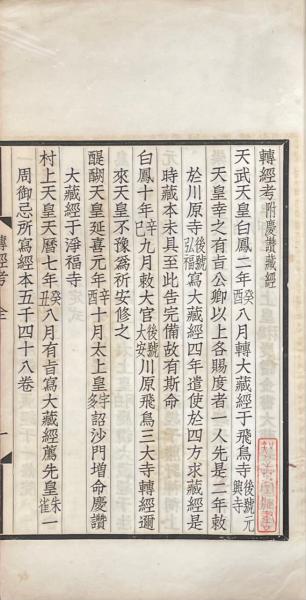 轉經考附慶讚藏經
天武天皇白鳳二年癸酉八月轉大藏經于飛鳥寺後號元興寺
天皇幸之有旨公卿以上各賜度者一人先是二年敕
於川原寺後號弘福寫大藏經四年遣使於四方求藏經是
時藏本未具至此告完備故有斯命
白鳳十年辛巳九月敕大官後號大安川原飛鳥三大寺轉經邇
來天皇不豫爲祈安修之
醍醐天皇延喜元年辛酉十月太上皇宇多詔沙門增命慶讚
大藏經于淨福寺
村上天皇天曆七年癸丑八月有旨寫大藏經薦先皇朱雀一
周御忌所寫經本五千四十八卷
轉經考 全 一